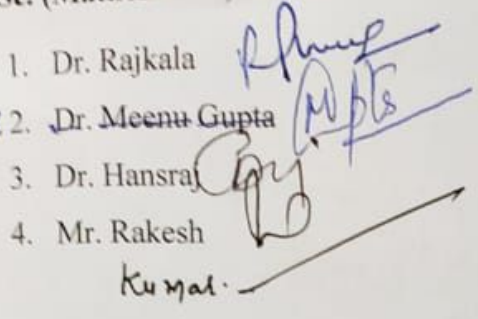 1. Dr. Rajkala
2. Dr. Meenu Gupta
3. Dr. Hansraj
4. Mr. Rakesh
Kumar.